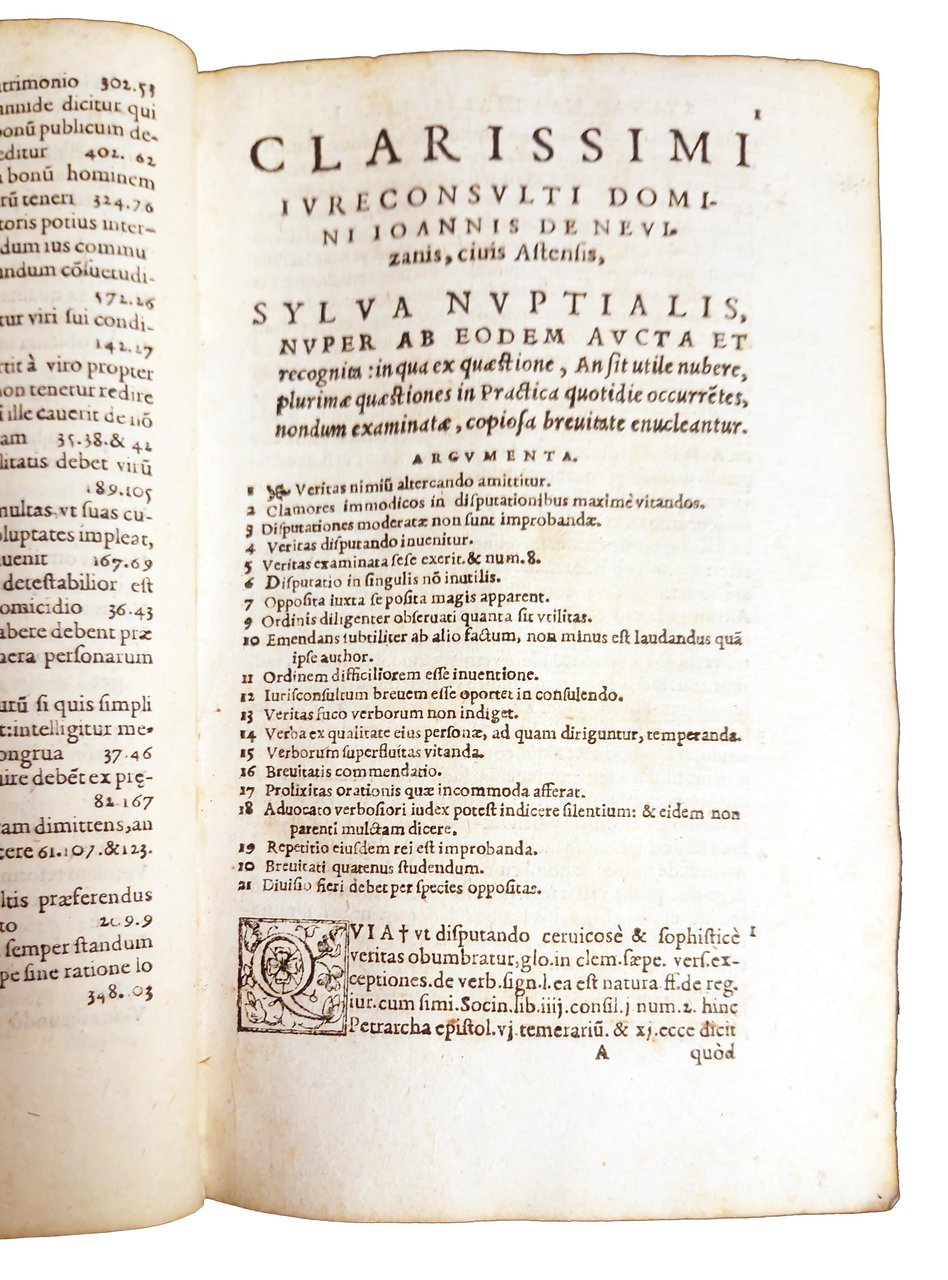 trimonio 302.53
dicitur qui
bonū publicum de-
editur 402. 62
bonū hominem
teneri 324.76
toris potius inter-
dum ius commu
andum cōsuetudi-
572.26
tur viri sui condi-
142.17
tit à viro propter
non tenetur redire
ille cauerit de nō
am 35.38.& 42
litatis debet virū
189.105
multas, vt suas cu-
oluptates impleat,
uenit 167.69
detestabilior est
omicidio 36.43
abere debent præ
nera personarum
utū si quis simpli
t:intelligitur me-
ongrua 37.46
uire debēt ex prę-
82.167
am dimittens,an
cere 61.107.&123.
ltis præferendus
to 209.9
semper standum
pe sine ratione lo
348. 03
1
CLARISSIMI
IVRECONSVLTI DOMI-
NI IOANNIS DE NEVI-
zanis, ciuis Astensis,
SYLVA NVPTIALIS,
NVPER AB EODEM AVCTA ET
recognita : in qua ex quæstione, An sit utile nubere,
plurimæ quæstiones in Practica quotidie occurrētes,
nondum examinatæ, copiosa breuitate enucleantur.
ARGVMENTA.
1 ❧ Veritas nimiū altercando amittitur.
2 Clamores immodicos in disputationibus maximè vitandos.
3 Disputationes moderatæ non sunt improbandæ.
4 Veritas disputando inuenitur.
5 Veritas examinata sese exerit. & num. 8.
6 Disputatio in singulis nō inutilis.
7 Opposita iuxta se posita magis apparent.
9 Ordinis diligenter obseruati quanta sit vtilitas.
10 Emendans subtiliter ab alio factum, non minus est laudandus quā
ipse author.
11 Ordinem difficiliorem esse inuentione.
12 Iurisconsultum breuem esse oportet in consulendo.
13 Veritas fuco verborum non indiget.
14 Verba ex qualitate eius personæ, ad quam diriguntur, temperanda.
15 Verborum superfluitas vitanda.
16 Breuitatis commendatio.
17 Prolixitas orationis quæ incommoda afferat.
18 Aduocato verbosiori iudex potest indicere silentium: & eidem non
parenti mulctam dicere.
19 Repetitio eiusdem rei est improbanda.
10 Breuitati quatenus studendum.
21 Diuisio fieri debet per species oppositas.
QVIA † vt disputando ceruicosè & sophisticè 1
veritas obumbratur, glo.in clem.sæpe. vers.ex-
ceptiones.de verb.sign.l.ea est natura ff.de reg.
iur.cum simi.Socin.lib.iiij.consil.j num.2. hinc
Petrarcha epistol.vj.temerariū. & xj.ecce dicit
A quòd